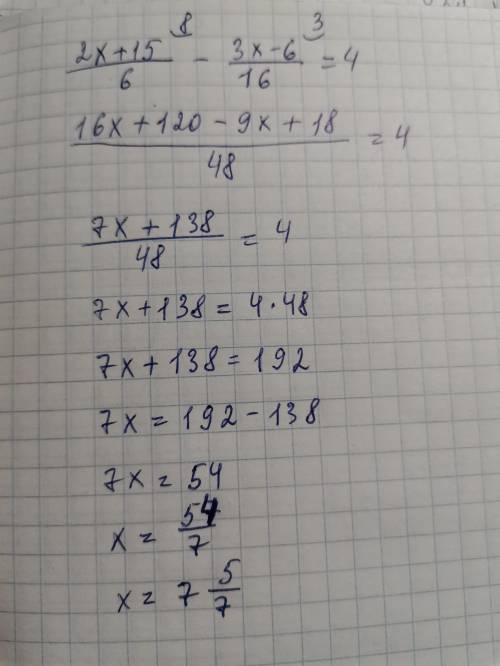 (2x+15)/6 ⁸ - (3x-6)/16 ³ = 4
(16x+120-9x+18)/48 = 4
(7x+138)/48 = 4
7x+138 = 4·48
7x+138 = 192
7x = 192-138
7x = 54
x = 54/7
x = 7 5/7